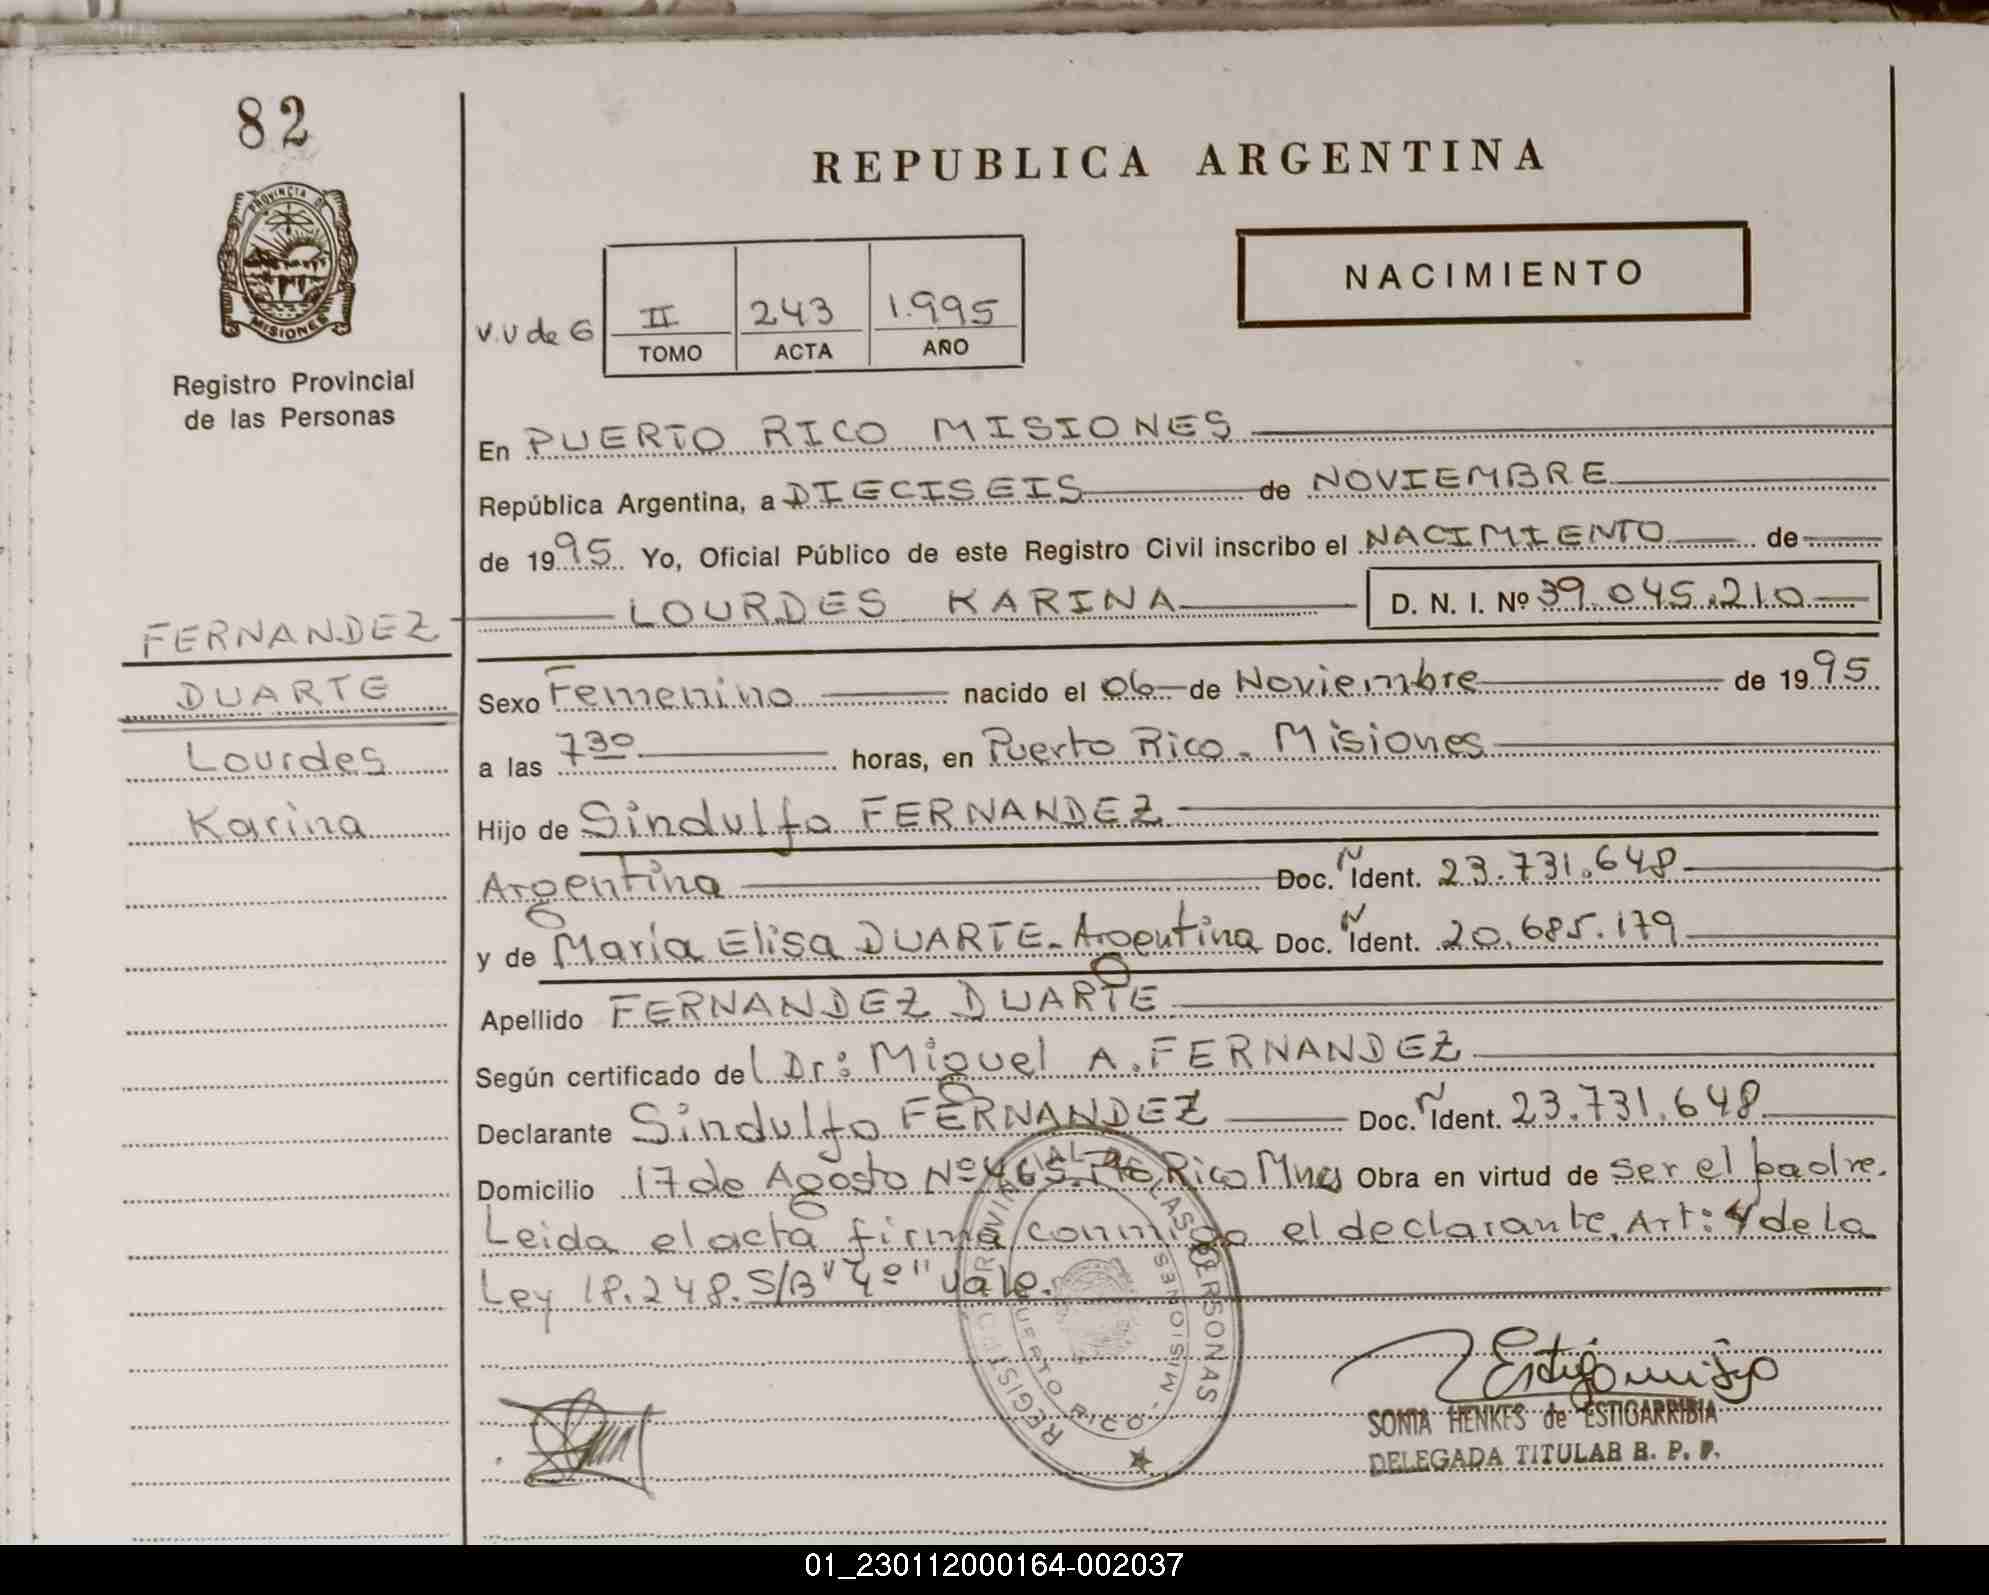 82
PROVINCIA DE
MISIONES
Registro Provincial
de las Personas
FERNANDEZ
DUARTE
Lourdes
Karina
REPUBLICA ARGENTINA
NACIMIENTO
V.U de G
II 243 1.995
TOMO ACTA AÑO
En PUERTO RICO MISIONES
República Argentina, a DIECISEIS de NOVIEMBRE
de 1995 Yo, Oficial Público de este Registro Civil inscribo el NACIMIENTO de
LOURDES KARINA D. N. I. Nº 39.045.210
Sexo Femenino nacido el 06 de Noviembre de 1995
a las 730 horas, en Puerto Rico - Misiones
Hijo de Sindulfo FERNANDEZ
Argentina Doc. Ñ Ident. 23.731.648
y de María Elisa DUARTE - Argentina Doc. Ñ Ident. 20.685.179
Apellido FERNANDEZ DUARTE
Según certificado del Dr: Miguel A. FERNANDEZ
Declarante Sindulfo FERNANDEZ Doc. Ñ Ident. 23.731.648
Domicilio 17 de Agosto Nº 465. Pto Rico Mnes Obra en virtud de ser el padre.
Leida el acta firma conmigo el declarante. Art: 4 de la
Ley 18.248. S/B "4º" vale.
REGISTRO PROVINCIAL DE LAS PERSONAS
PUERTO RICO - MISIONES
SONIA HENKES de ESTIGARRIBIA
DELEGADA TITULAR R. P. P.
01_230112000164-002037